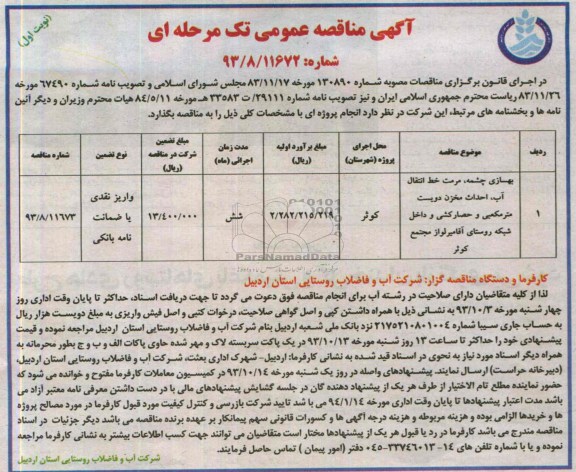 (نوبت اول)
آگهی مناقصه عمومی تک مرحله ای
شماره: ۹۳/۸/۱۱۶۷۲
در اجرای قانون برگزاری مناقصات مصوبه شماره ۱۳۰۸۹۰ مورخه ۸۳/۱۱/۱۷ مجلس شورای اسلامی و تصویب نامه شماره ۶۷۴۹۰ مورخه
۸۳/۱۱/۲۶ ریاست محترم جمهوری اسلامی ایران و نیز تصویب نامه شماره ۲۹۱۱۱/ت ۳۳۵۸۳ هـ مورخه ۸۴/۵/۱۱ هیات محترم وزیران و دیگر آئین
نامه ها و بخشنامه های مرتبط، این شرکت در نظر دارد انجام پروژه ای با مشخصات کلی ذیل را به مناقصه بگذارد.
ردیف موضوع مناقصه محل اجرای پروژه (شهرستان) مبلغ برآورد اولیه (ریال) مدت زمان اجرائی (ماه) مبلغ تضمین شرکت در مناقصه (ریال) نوع تضمین شماره مناقصه
۱ بهسازی چشمه، مرمت خط انتقال آب، احداث مخزن دویست مترمکعبی و حصارکشی و داخل شبکه روستای آقامیرلواز مجتمع کوثر کوثر ۲/۲۸۲/۲۱۵/۷۱۹ شش ۱۳/۴۰۰/۰۰۰ واریز نقدی یا ضمانت نامه بانکی ۹۳/۸/۱۱۶۷۳
ParsNamadData
کارفرما و دستگاه مناقصه گزار: شرکت آب و فاضلاب روستایی استان اردبیل
لذا از کلیه متقاضیان دارای صلاحیت در رشته آب برای انجام مناقصه فوق دعوت می گردد تا جهت دریافت اسناد، حداکثر تا پایان وقت اداری روز
چهار شنبه مورخه ۹۳/۱۰/۳ به آدرس ذیل با همراه داشتن کپی و اصل گواهی صلاحیت، درخوات کتبی و اصل فیش واریزی به مبلغ دویست هزار ریال
به حساب جاری سیبا شماره ۲۱۷۵۲۱۰۸۰۱۰۰۴ نزد بانک ملی شعبه اردبیل بنام شرکت آب و فاضلاب روستایی استان اردبیل مراجعه نموده و قیمت
پیشنهادی خود را حداکثر تا ساعت ۱۳ روز شنبه مورخه ۹۳/۱۰/۱۳ در یک پاکت سربسته لاک و مهر شده حاوی پاکات الف و ب و ج بطور محرمانه به
همراه دیگر اسناد مورد نیاز به نحوی در اسناد قید شده به نشانی کارفرما: اردبیل- شهرک اداری بعثت، شرکت آب و فاضلاب روستایی استان اردبیل،
(دبیرخانه حراست) ارسال نمایند. پیشنهادهای واصله در روز یک شنبه مورخه ۹۳/۱۰/۱۴ در کمیسیون معاملات کارفرما مفتوح و خوانده می شود که
حضور نماینده مطلع تام الاختیار از طرف هر یک از پیشنهاد دهنده گان در جلسه گشایش پیشنهادهای مالی با در دست داشتن معرفی نامه معتبر آزاد می
باشد مدت اعتبار پیشنهادها تا پایان وقت اداری مورخه ۹۴/۱/۱۴ می باشد تایید شرکت بازرسی و کنترل کیفیت مورد قبول کارفرما در مورد مصالح پروژه
ها و خریدها الزامی بوده و هزینه مربوطه و هزینه درجه آگهی ها و کسورات قانونی سهم پیمانکار بر عهده برنده مناقصه می باشد دیگر جزئیات در اسناد
مناقصه مندرج می باشد کارفرما در رد یا قبول هر یک از پیشنهادها مختار است متقاضیان می توانند جهت کسب اطلاعات بیشتر به نشانی کارفرما مراجعه
نموده و یا با شماره تلفن های ۱۴-۳۳۷۴۶۰۱۳-۰۴۵ دفتر (امور پیمان) تماس حاصل فرمایند.
شرکت آب و فاضلاب روستایی استان اردبیل